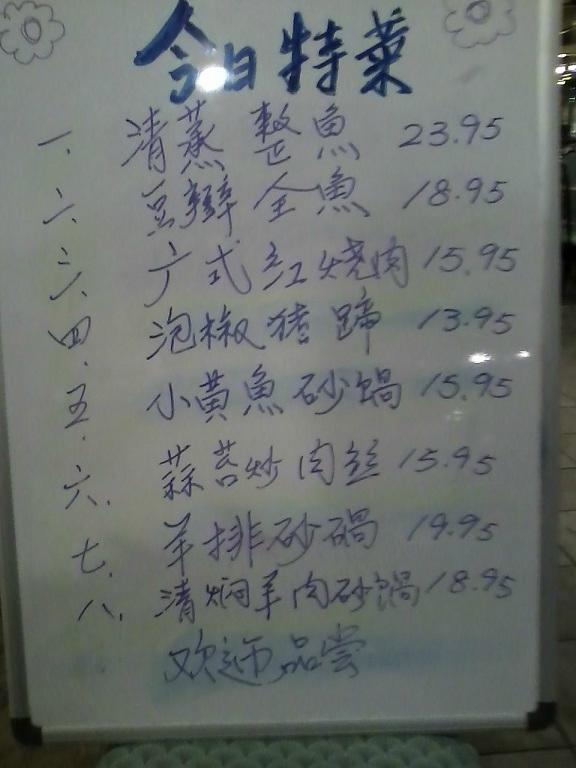 今日特菜
一、清蒸整魚 23.95
二、豆瓣全魚 18.95
三、广式红烧肉 15.95
四、泡椒猪蹄 13.95
五、小黄魚砂鍋 15.95
六、蒜苔炒肉丝 15.95
七、羊排砂鍋 19.95
八、清焖羊肉砂鍋 18.95
欢迎品尝